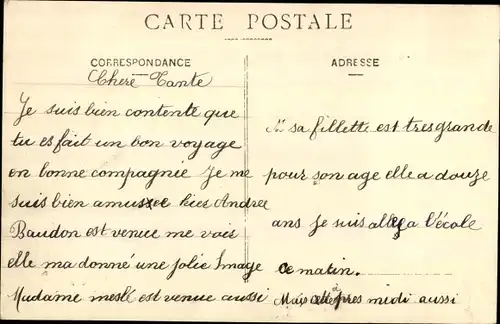 CARTE POSTALE
CORRESPONDANCE
Chere Tante
Je suis bien contente que
tu es fait un bon voyage
en bonne compagnie Je me
suis bien amusee hier Andree
Baudon est venue me voir
elle ma donné une jolie Image
Madame meslé est venue aussi
ADRESSE
sa fillette est tres grande
pour son age elle a douze
ans Je suis allée a l'école
ce matin.
Mais cette apres midi aussi